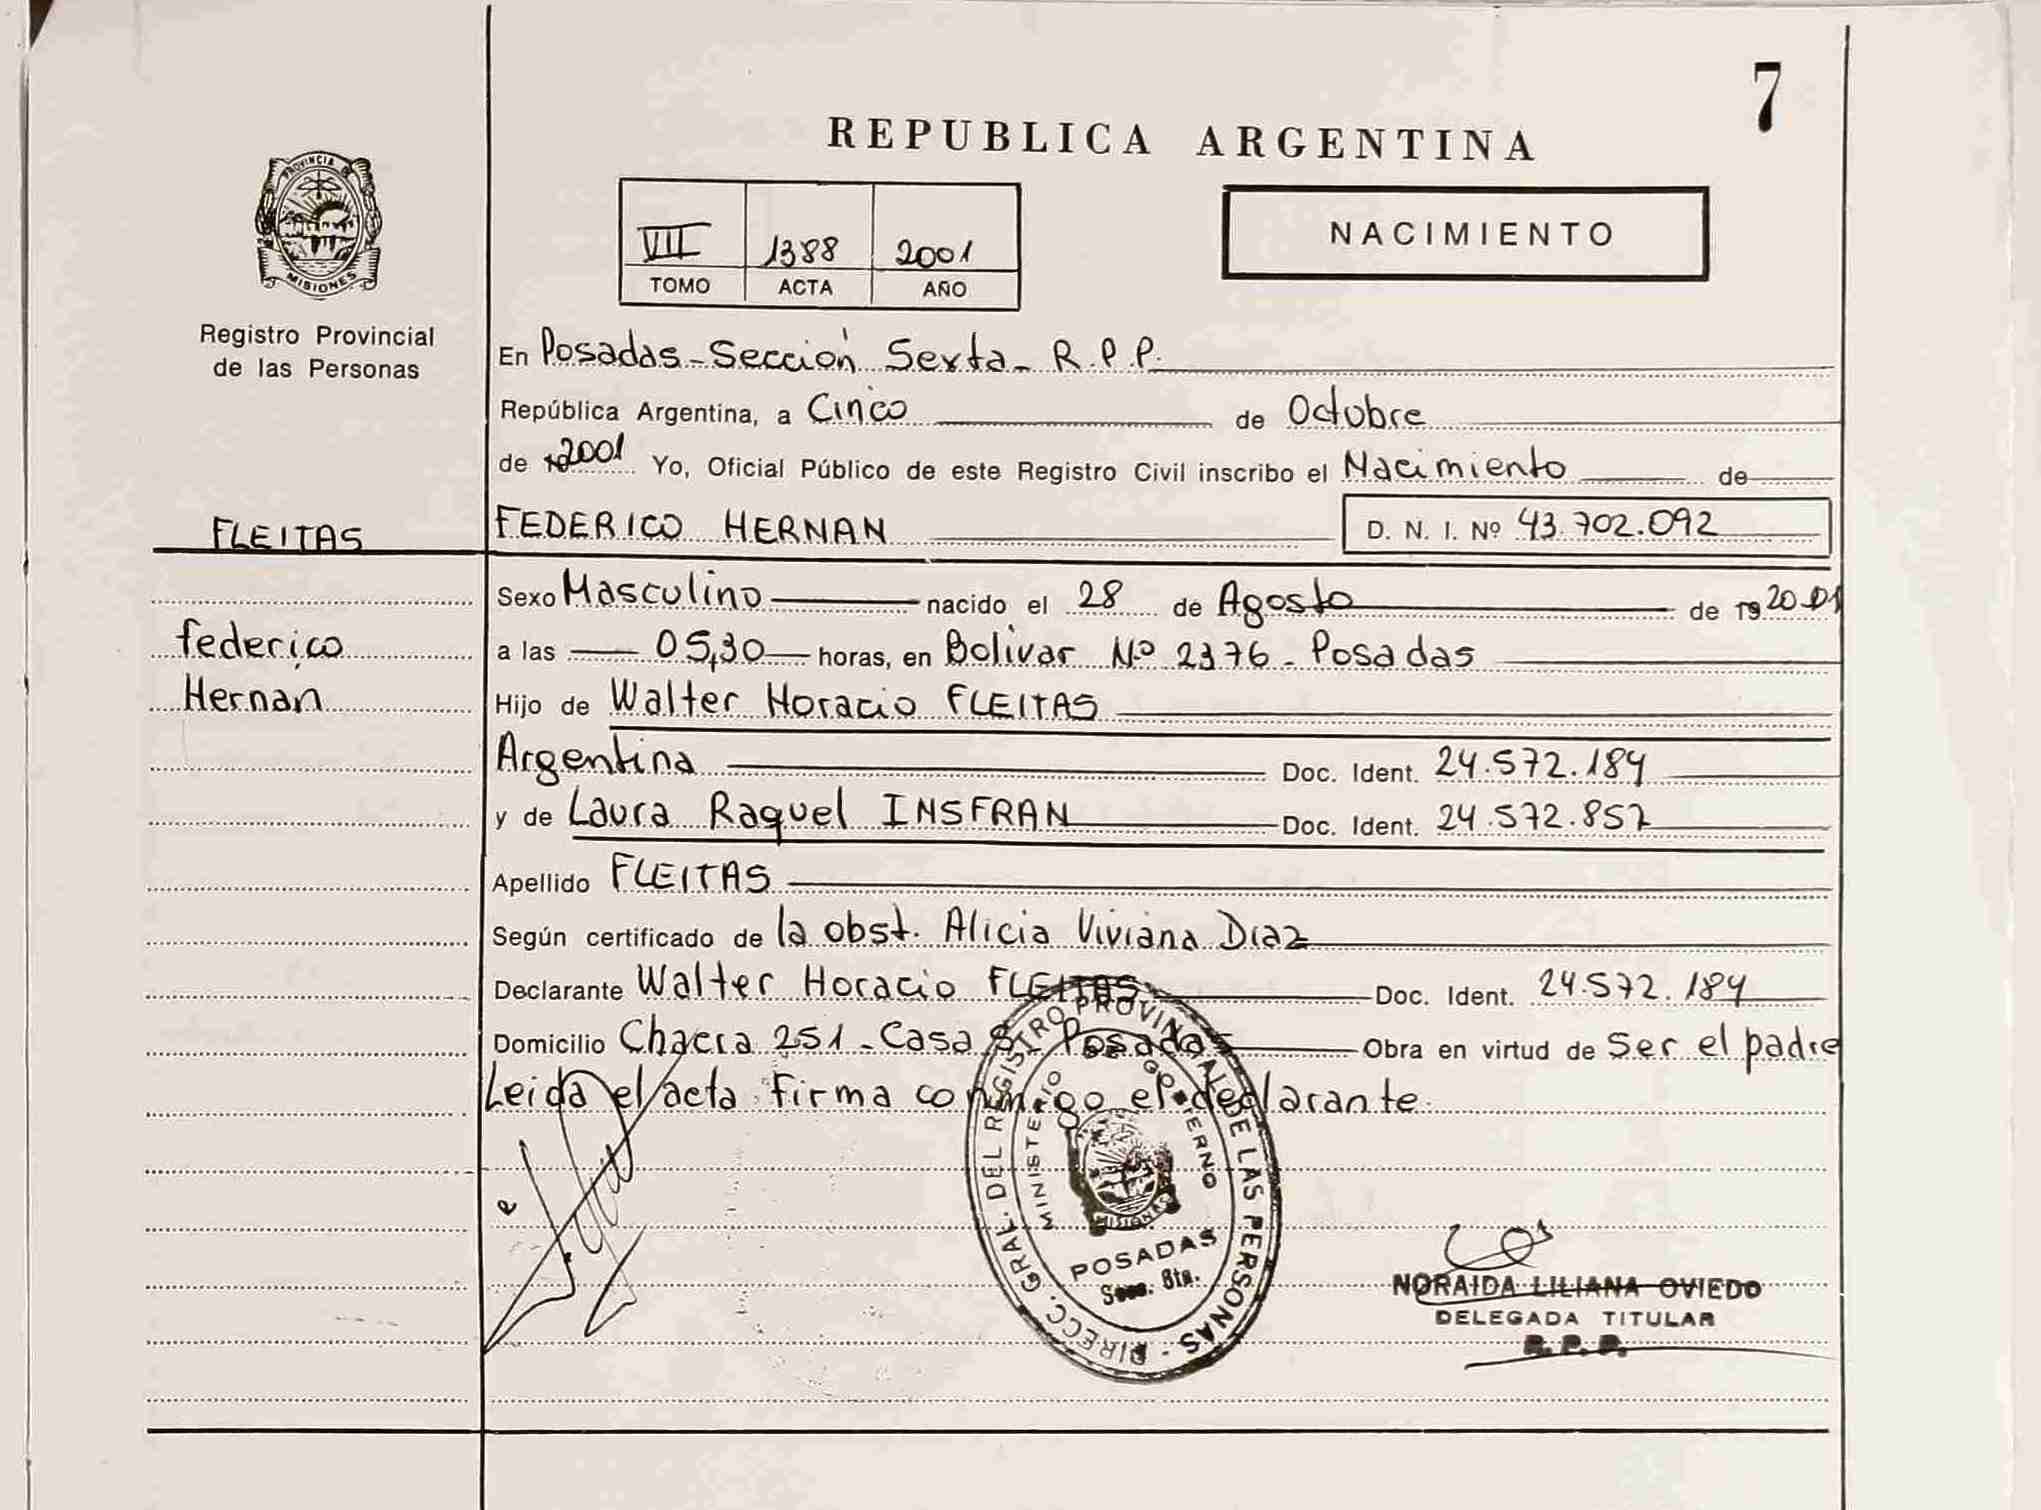 7
REPUBLICA ARGENTINA
PROVINCIA DE
MISIONES
Registro Provincial
de las Personas
VII 1388 2001
TOMO ACTA AÑO
NACIMIENTO
En Posadas - Sección Sexta - R.P.P.
República Argentina, a Cinco de Octubre
de 2001 Yo, Oficial Público de este Registro Civil inscribo el Nacimiento de
FLEITAS
FEDERICO HERNAN D. N. I. Nº 43.702.092
Sexo Masculino nacido el 28 de Agosto de 19 2001
federico
a las 05,30 horas, en Bolivar Nº 2376 - Posadas
Hernan
Hijo de Walter Horacio FLEITAS
Argentina Doc. Ident. 24.572.184
y de Laura Raquel INSFRAN Doc. Ident. 24.572.857
Apellido FLEITAS
Según certificado de la obst. Alicia Viviana Diaz
Declarante Walter Horacio FLEITAS Doc. Ident. 24.572.184
Domicilio Chacra 251 - Casa 8 - Posadas Obra en virtud de Ser el padre
Leida el acta firma conmigo el declarante.
DIRECC. GRAL. DEL REGISTRO PROVINCIAL DE LAS PERSONAS -
MINISTERIO GOBIERNO
MISIONES
POSADAS
Secc. 6ta.
NORAIDA LILIANA OVIEDO
DELEGADA TITULAR
R. P. P.